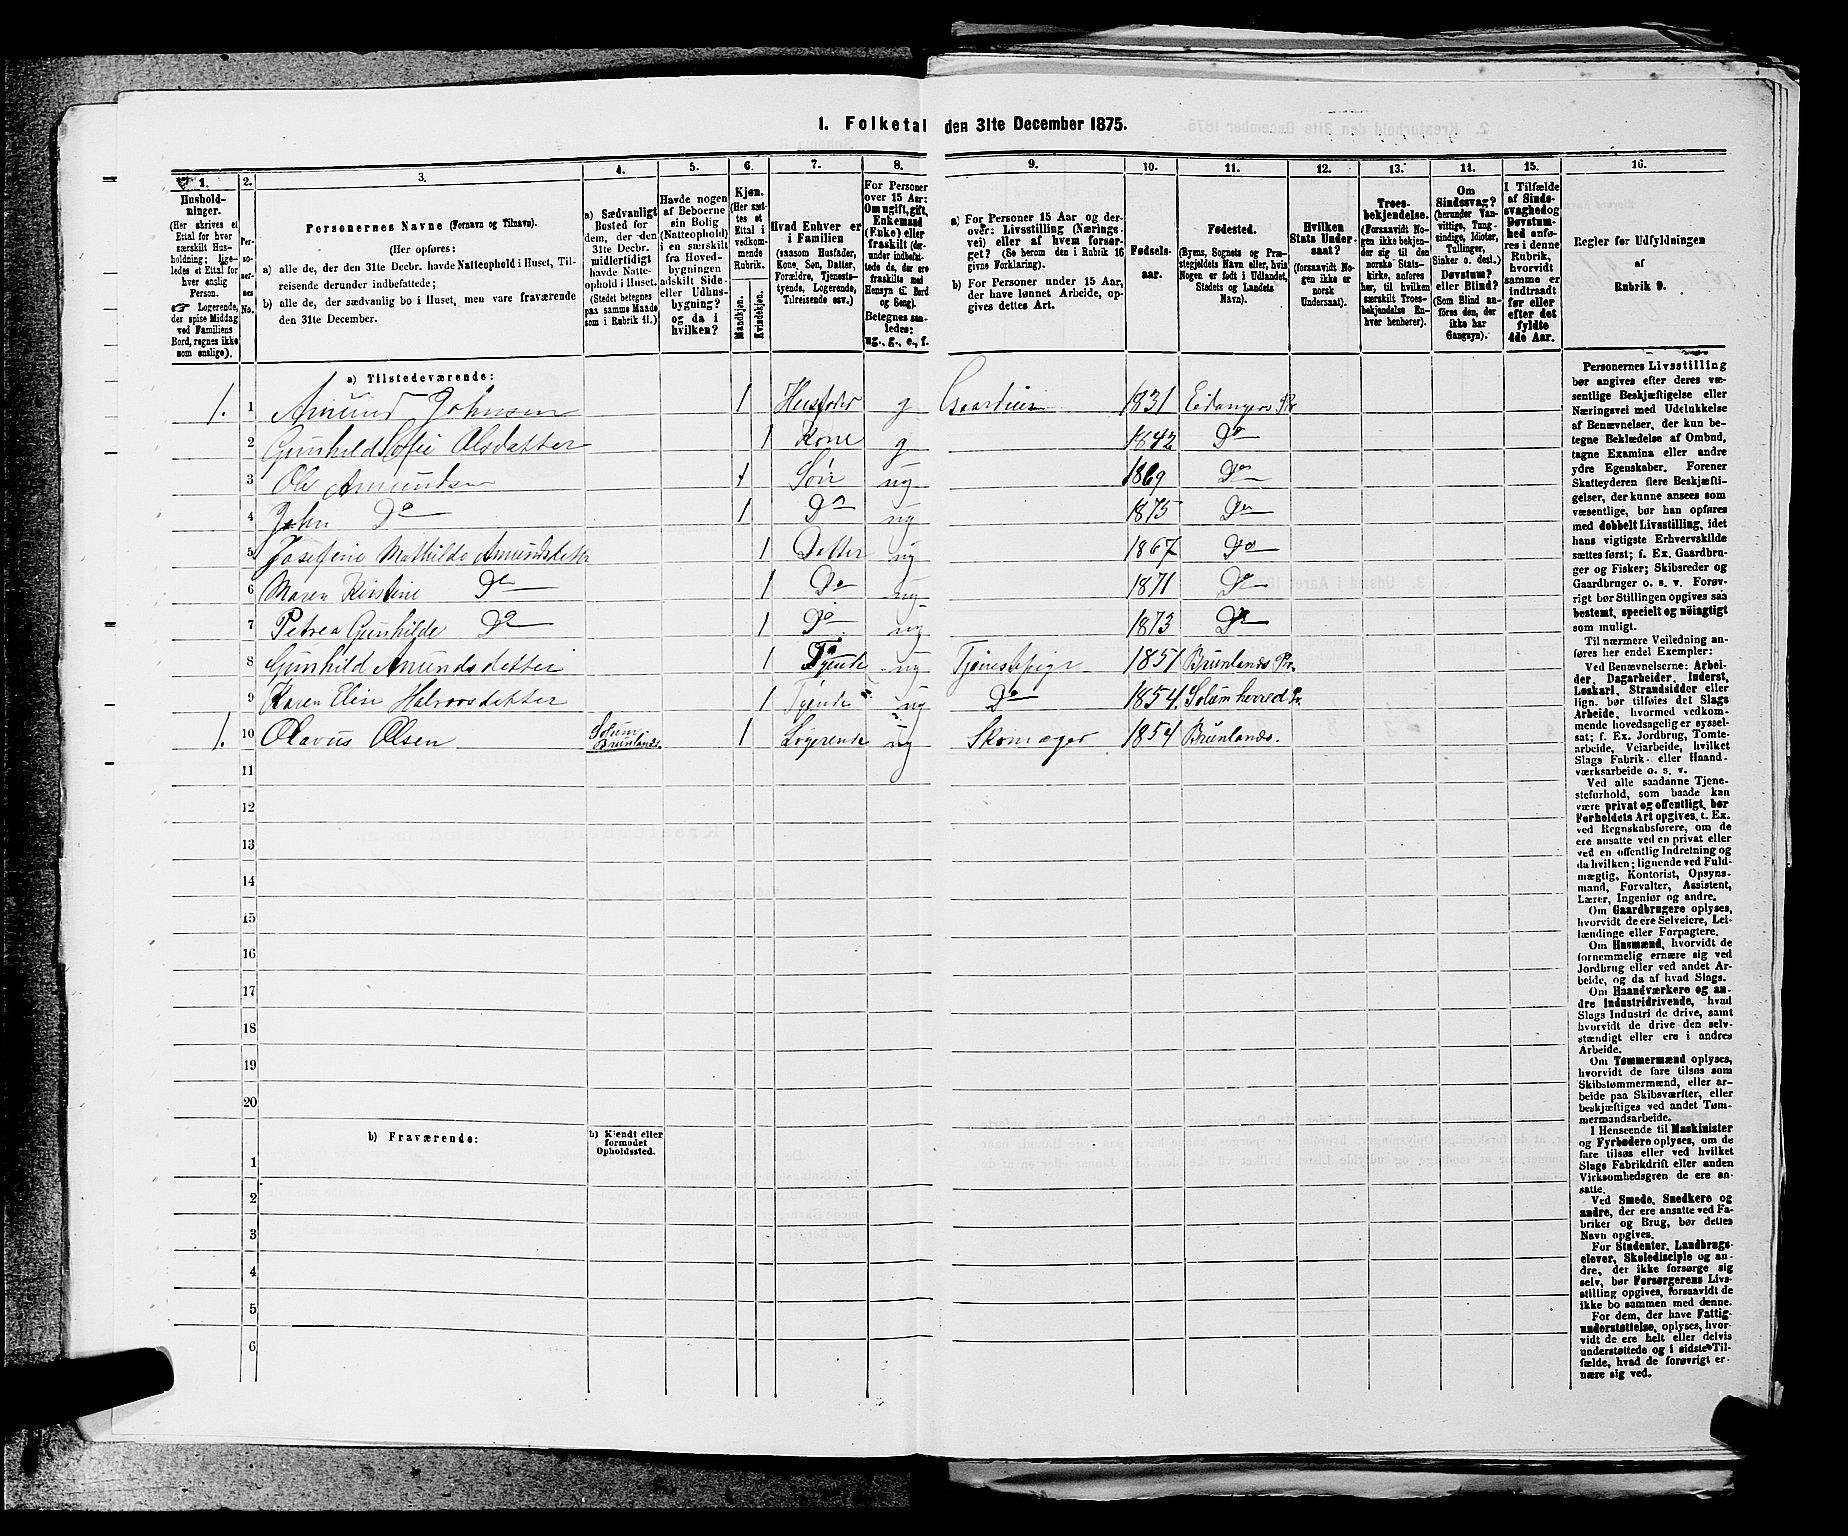 1. Folketal den 31te December 1875.
1. 2. 3. 4. 5. 6. 7. 8. 9. 10. 11. 12. 13. 14. 15. 16.
Hushold-
ninger.
(Her skrives et
Ettal for hver
særskilt Hus-
holdning; lige-
ledes et Ettal for
hver enslig
Person.
☞ Logerende,
der spise Middag
ved Familiens
Bord, regnes ikke
som enslige).
Per-
so-
ner-
nes
No.
Personernes Navne (Fornavn og Tilnavn).
(Her opføres:
a) alle de, der den 31te Decbr. havde Natteophold i Huset, Til-
reisende derunder indbefattede;
b) alle de, der sædvanlig bo i Huset, men vare fraværende
den 31te December.
a) Sædvanligt
Bosted for
dem, der den
31te Decbr.
midlertidigt
havde Natte-
ophold i Huset.
(Stedet betegnes
paa samme Maade
som i Rubrik 11.)
Havde nogen
af Beboerne
sin Bolig
(Natteophold)
i en særskilt
fra Hoved-
bygningen
adskilt Side-
eller Udhus-
bygning?
og da i
hvilken?
Kjøn.
(Her sæt-
tes et
Ettal i
vedkom-
mende
Rubrik.
Mandkjøn.
Kvindekjøn.
Hvad Enhver er
i Familien
(saasom Husfader,
Kone, Søn, Datter,
Forældre, Tjeneste-
tyende, Logerende,
Tilreisende osv.)
For Personer
over 15 Aar:
Om ugift, gift,
Enkemand
(Enke) eller
fraskilt (der-
under indbefat-
tede de, der ere
fraskilte med
Hensyn til Bord
og Seng).
Betegnes saa-
ledes:
ug., g., e., f.
a) For Personer 15 Aar og der-
over: Livsstilling (Nærings-
vei) eller af hvem forsør-
get? (Se herom den i Rubrik 16
givne Forklaring).
b) For Personer under 15 Aar,
der have lønnet Arbeide, op-
gives dettes Art.
Fødsels-
aar.
Fødested.
(Byens, Sognets og Præ-
stegjeldets Navn eller, hvis
Nogen er født i Udlandet,
Stedets og Landets
Navn).
Hvilken
Stats Under-
saat?
(forsaavidt No-
gen ikke er
norsk
Undersaat).
Troes-
bekjendelse.
(Forsaavidt No-
gen ikke bekjen-
der sig til den
norske Stats-
kirke, anføres
her, til hvilken
særskilt Troes-
bekjendelse En-
hver henhører).
Om
Sindssvag?
(herunder Van-
vittige, Tung-
sindige, Idioter,
Tullinger,
Sinker o. desl.)
Døvstum?
eller Blind?
(Som Blind an-
føres den, der
ikke har
Gangsyn).
I Tilfælde
af Sinds-
svaghed og
Døvstum-
hed anfø-
res i denne
Rubrik,
hvorvidt
samme er
indtraadt
før eller
efter det
fyldte
4de Aar.
Regler for Udfyldningen
af
Rubrik 9.
a) Tilstedeværende:
1. 1 Amund Johnsen 1 Husfader g Gaardeier 1831 Eidangers Pr
2 Gunhild Sofie Olsdatter 1 Kone g 1842 Do
3 Ole Amundsen 1 Søn ug 1869 Do
4 John Do 1 Do ug 1875 Do
5 Josefine Mathilde Amundsdatter 1 Datter ug 1867 Do
6 Maren Kirstine Do 1 Do ug 1871 Do
7 Petrea Gunhilde Do 1 Do ug 1873 Do
8 Gunhild Amundsdatter 1 Tyende ug Tjenestepige 1851 Brunlands Pr.
9 Karen Elise Halvorsdatter 1 Tyende ug Do 1854 Solum herred Pr.
1. 10 Olavus Olsen Solum Brunlands. 1 Logerende ug Skomager 1854 Brunlands.
11
12
13
14
15
16
17
18
19
20
b) Fraværende:
b) Kjendt eller
formodet
Opholdssted.
1
2
3
4
5
6
Personernes Livsstilling
bør angives efter deres væ-
sentlige Beskjæftigelse eller
Næringsvei med Udelukkelse
af Benævnelser, der kun be-
tegne Beklædelse af Ombud,
tagne Examina eller andre
ydre Egenskaber. Forener
Skatteyderen flere Beskjæfti-
gelser, der kunne ansees som
væsentlige, bør han opføres
med dobbelt Livsstilling, idet
hans vigtigste Erhvervskilde
sættes først; f. Ex. Gaardbru-
ger og Fisker; Skibsreder og
Gaardbruger o. s. v. Forøv-
rigt bør Stillingen opgives saa
bestemt, specielt og nöiagtigt
som muligt.
Til nærmere Veiledning an-
føres her endel Exempler:
Ved Benævnelserne: Arbei-
der, Dagarbeider, Inderst,
Løskarl, Strandsidder eller
lign. bør tilføies det Slags
Arbeide, hvormed vedkom-
mende hovedsagelig er syssel-
sat; f. Ex. Jordbrug, Tomte-
arbeide, Veiarbeide, hvilket
Slags Fabrik- eller Haand-
værksarbeide o. s. v.
Ved alle saadanne Tjene-
steforhold, som baade kan
være privat og offentligt, bør
Forholdets Art opgives, t. Ex.
ved Regnskabsførere, om de
ere ansatte ved en privat eller
ved en offentlig Indretning og
da hvilken; lignende ved Fuld-
mægtig, Kontorist, Opsyns-
mand, Forvalter, Assistent,
Lærer, Ingeniør og andre.
Om Gaardbrugere oplyses,
hvorvidt de ere Selveiere, Lei-
lændinge eller Forpagtere.
Om Husmænd, hvorvidt de
fornemmelig ernære sig ved
Jordbrug eller ved andet Ar-
beide, og da af hvad Slags.
Om Haandværkere og an-
dre Industridrivende, hvad
Slags Industri de drive, samt
hvorvidt de drive den selv-
stændigt eller ere i andres
Arbeide.
Om Tømmermænd oplyses,
hvorvidt de fare tilsøs som
Skibstømmermænd, eller ar-
beide paa Skibsværfter, eller
beskjæftiges ved andet Tøm-
mermandsarbeide.
I Henseende til Maskinister
og Fyrbødere oplyses, om de
fare tilsøs eller ved hvilket
Slags Fabrikdrift eller anden
Virksomhedsgren de ere an-
satte.
Ved Smede, Snedkere og
andre, der ere ansatte ved Fa-
briker og Brug, bør dettes
Navn opgives.
For Studenter, Landbrugs-
elever, Skoledisciple og an-
dre, der ikke forsørge sig
selv, bør Forsørgerens Livs-
stilling opgives, forsaavidt de
ikke bo sammen med denne.
For dem, der have Fattig-
understøttelse, oplyses, hvor-
vidt de ere helt eller delvis
understøttede og i sidste Til-
fælde, hvad de forøvrigt er-
nære sig ved.